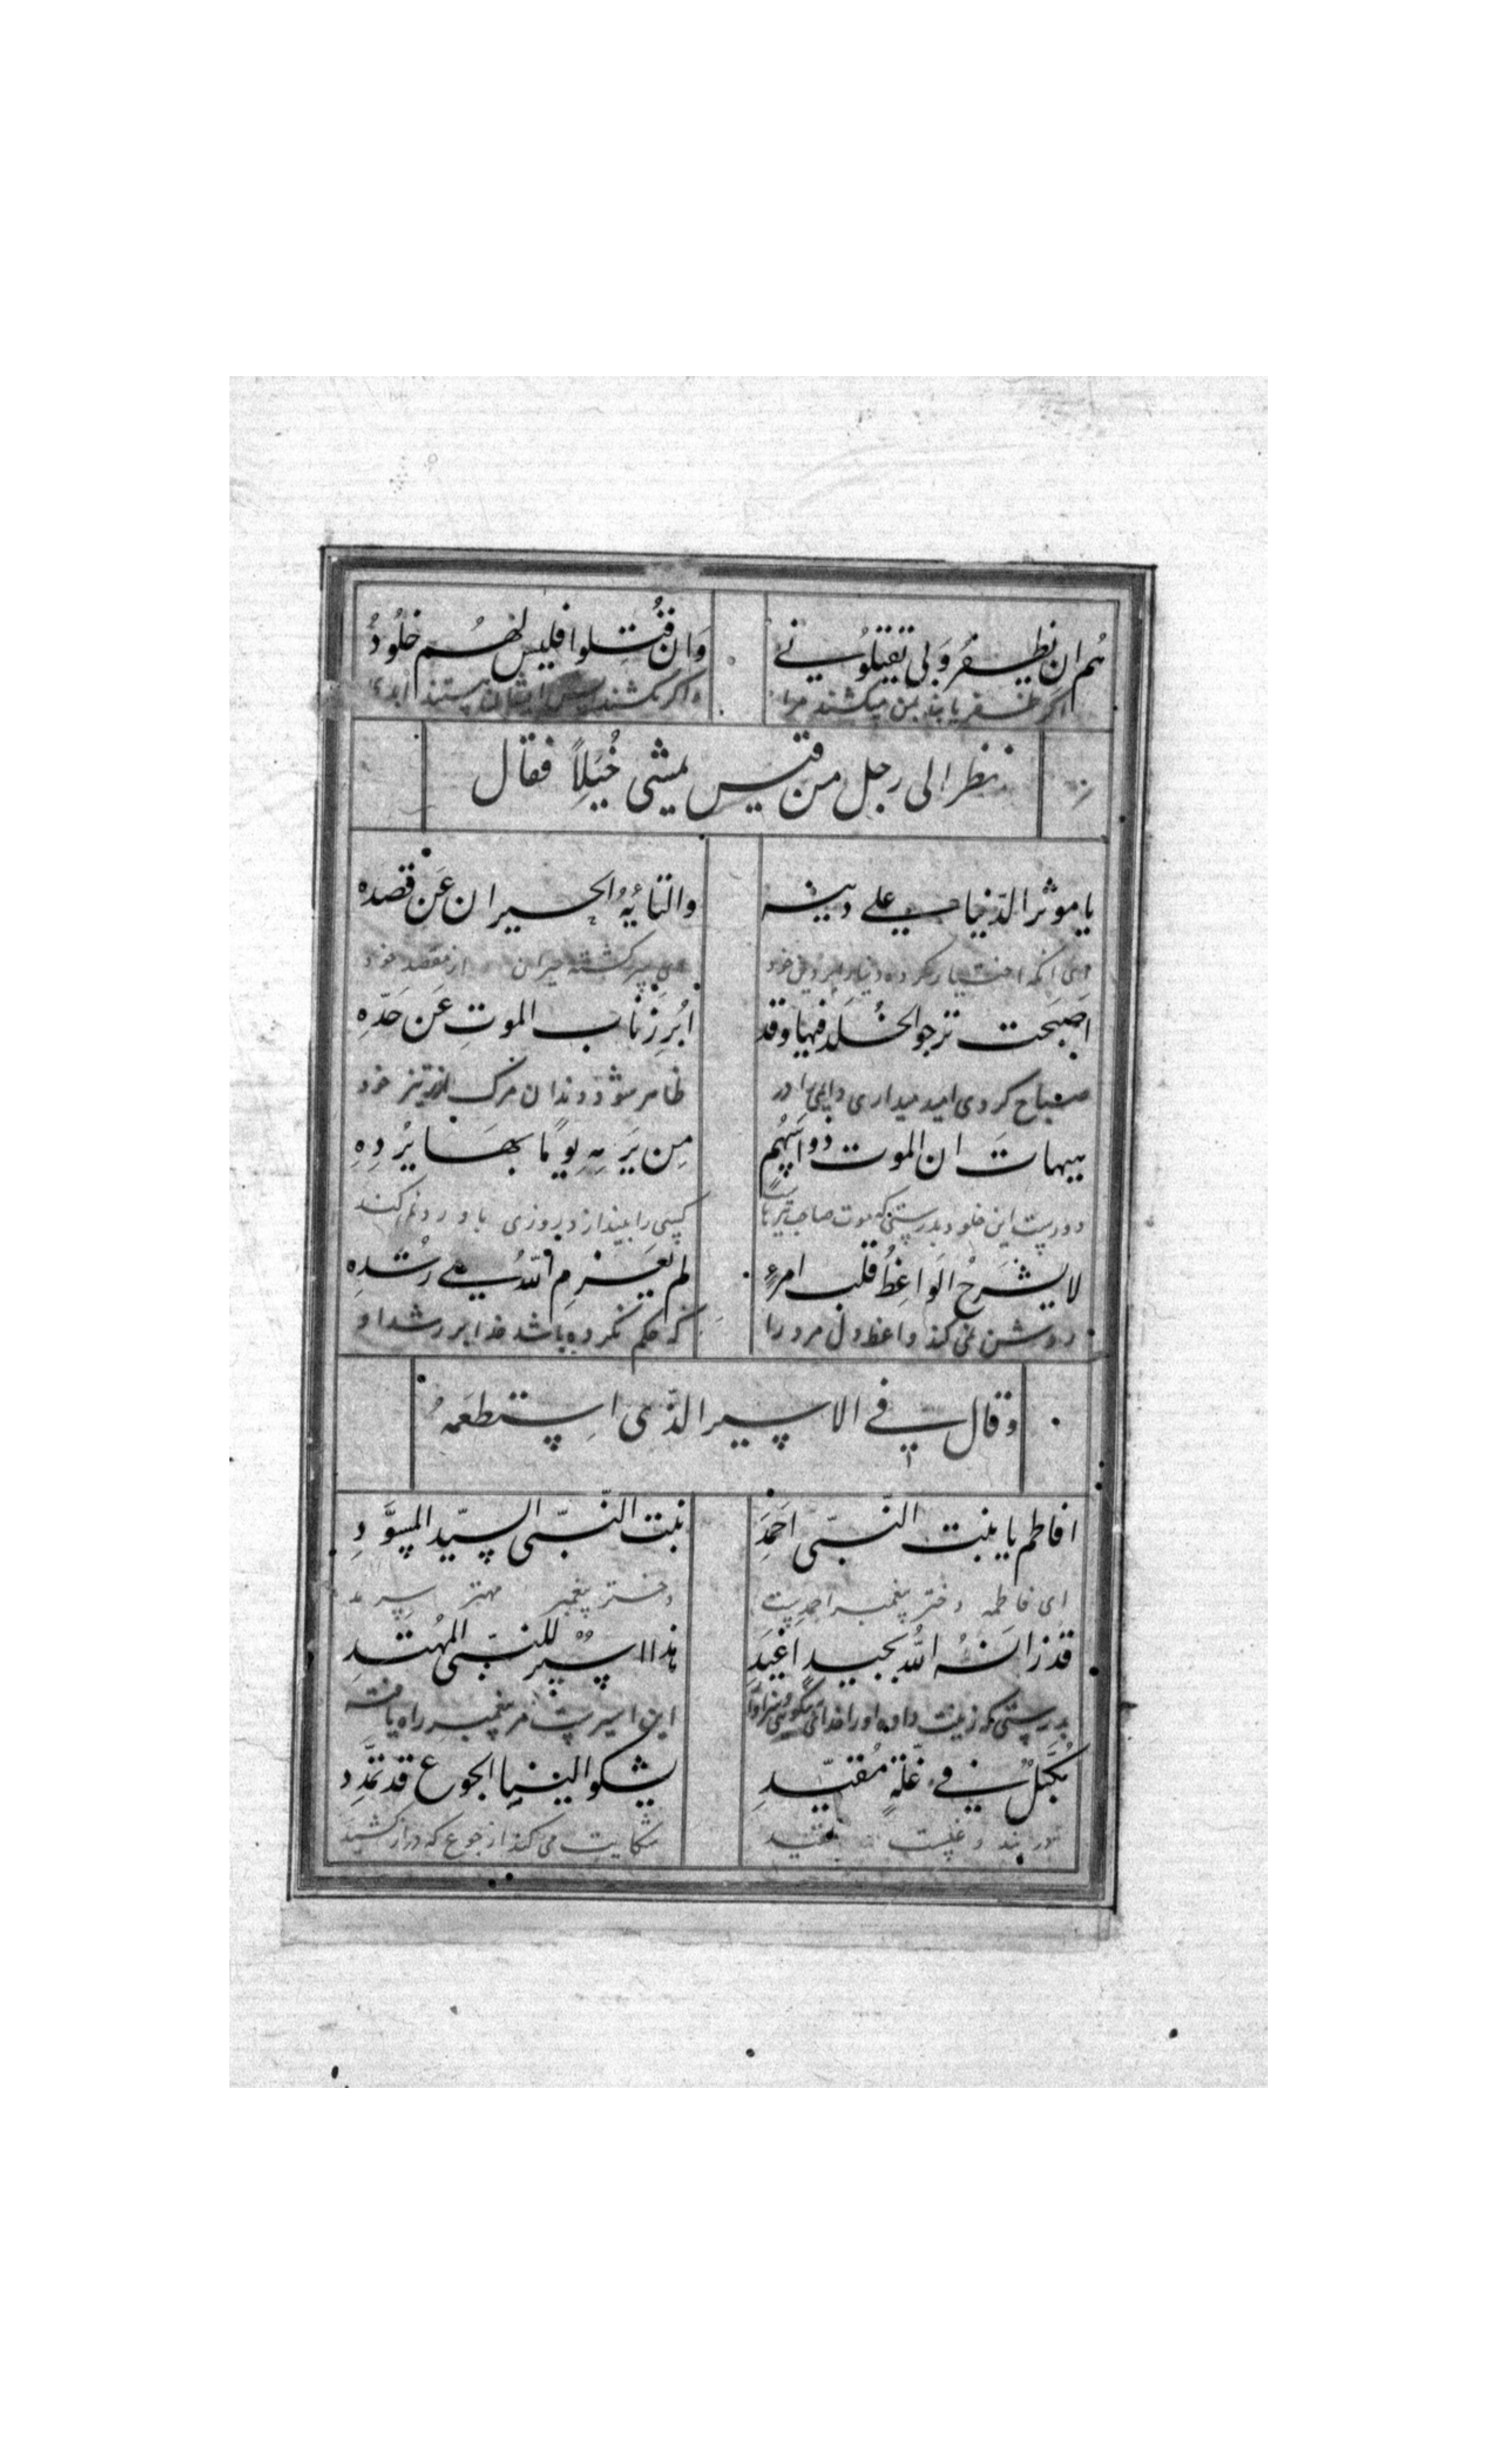 هم ان یظفروا بی تقتلونی وان قتلوا فلیس لهم خلود
اگر ظفر یابند بمن میکشند مرا واگر بکشند پس ایشان نیستند ابدی
نظر الی رجل من قیس یمشی خُیَلاً فقال
یا موثر الدّنیا علی دینه والتائِهُ الحیران عَن قصده
ای آنکه اختیار کرده دنیا را بر دین خود ای سرگشته حیران از مقصد خود
اصَبحت ترجو الخُلدَ فیها وقد ابُرِزَ ناب الموتِ عَن حَدّهِ
صباح کردی امید میداری دایمی را در ظاهر شود دندان مرک از تیز خود
هیهاتَ ان الموت ذو اَسْهُمٍ مِن یَرمِهِ یومًا بهَا یُردِهِ
دورست این خلود بدرستی که موت صاحب تیرهاست کسی را بیندازد روزی باو رد نمیکند
لا یشرَحُ الوَاعِظُ قلب امرءٍ لم یعَزِمِ اللّهُ علی رُشدِهِ
روشن نمی کند واعظ دل مرد را که حکم نکرده باشد خدا بر رشد او
وقال فی الاسیر الذّی اِستطعَمهُ
افاطم یا بنت النّبی احَمَدِ بنت النّبی السیّد المسوَّدِ
ای فاطمه دختر پیغمبر احمدست دختر پیغمبر مهتر
قد زانَهُ اللّه بجیدٍ اغیَدِ هذا اسیرٌ للنبّی المهُتدِ
بدرستی که زینت داده او را خدای این اسیرست مر پیغمبر راه یافته
مُکَبّلٌ فی غلّةٍ مُقیّدِ یشکو الینا الجوع قد تمَّدد
در بند و غلست شکایت می کند از جوع که دراز کشید